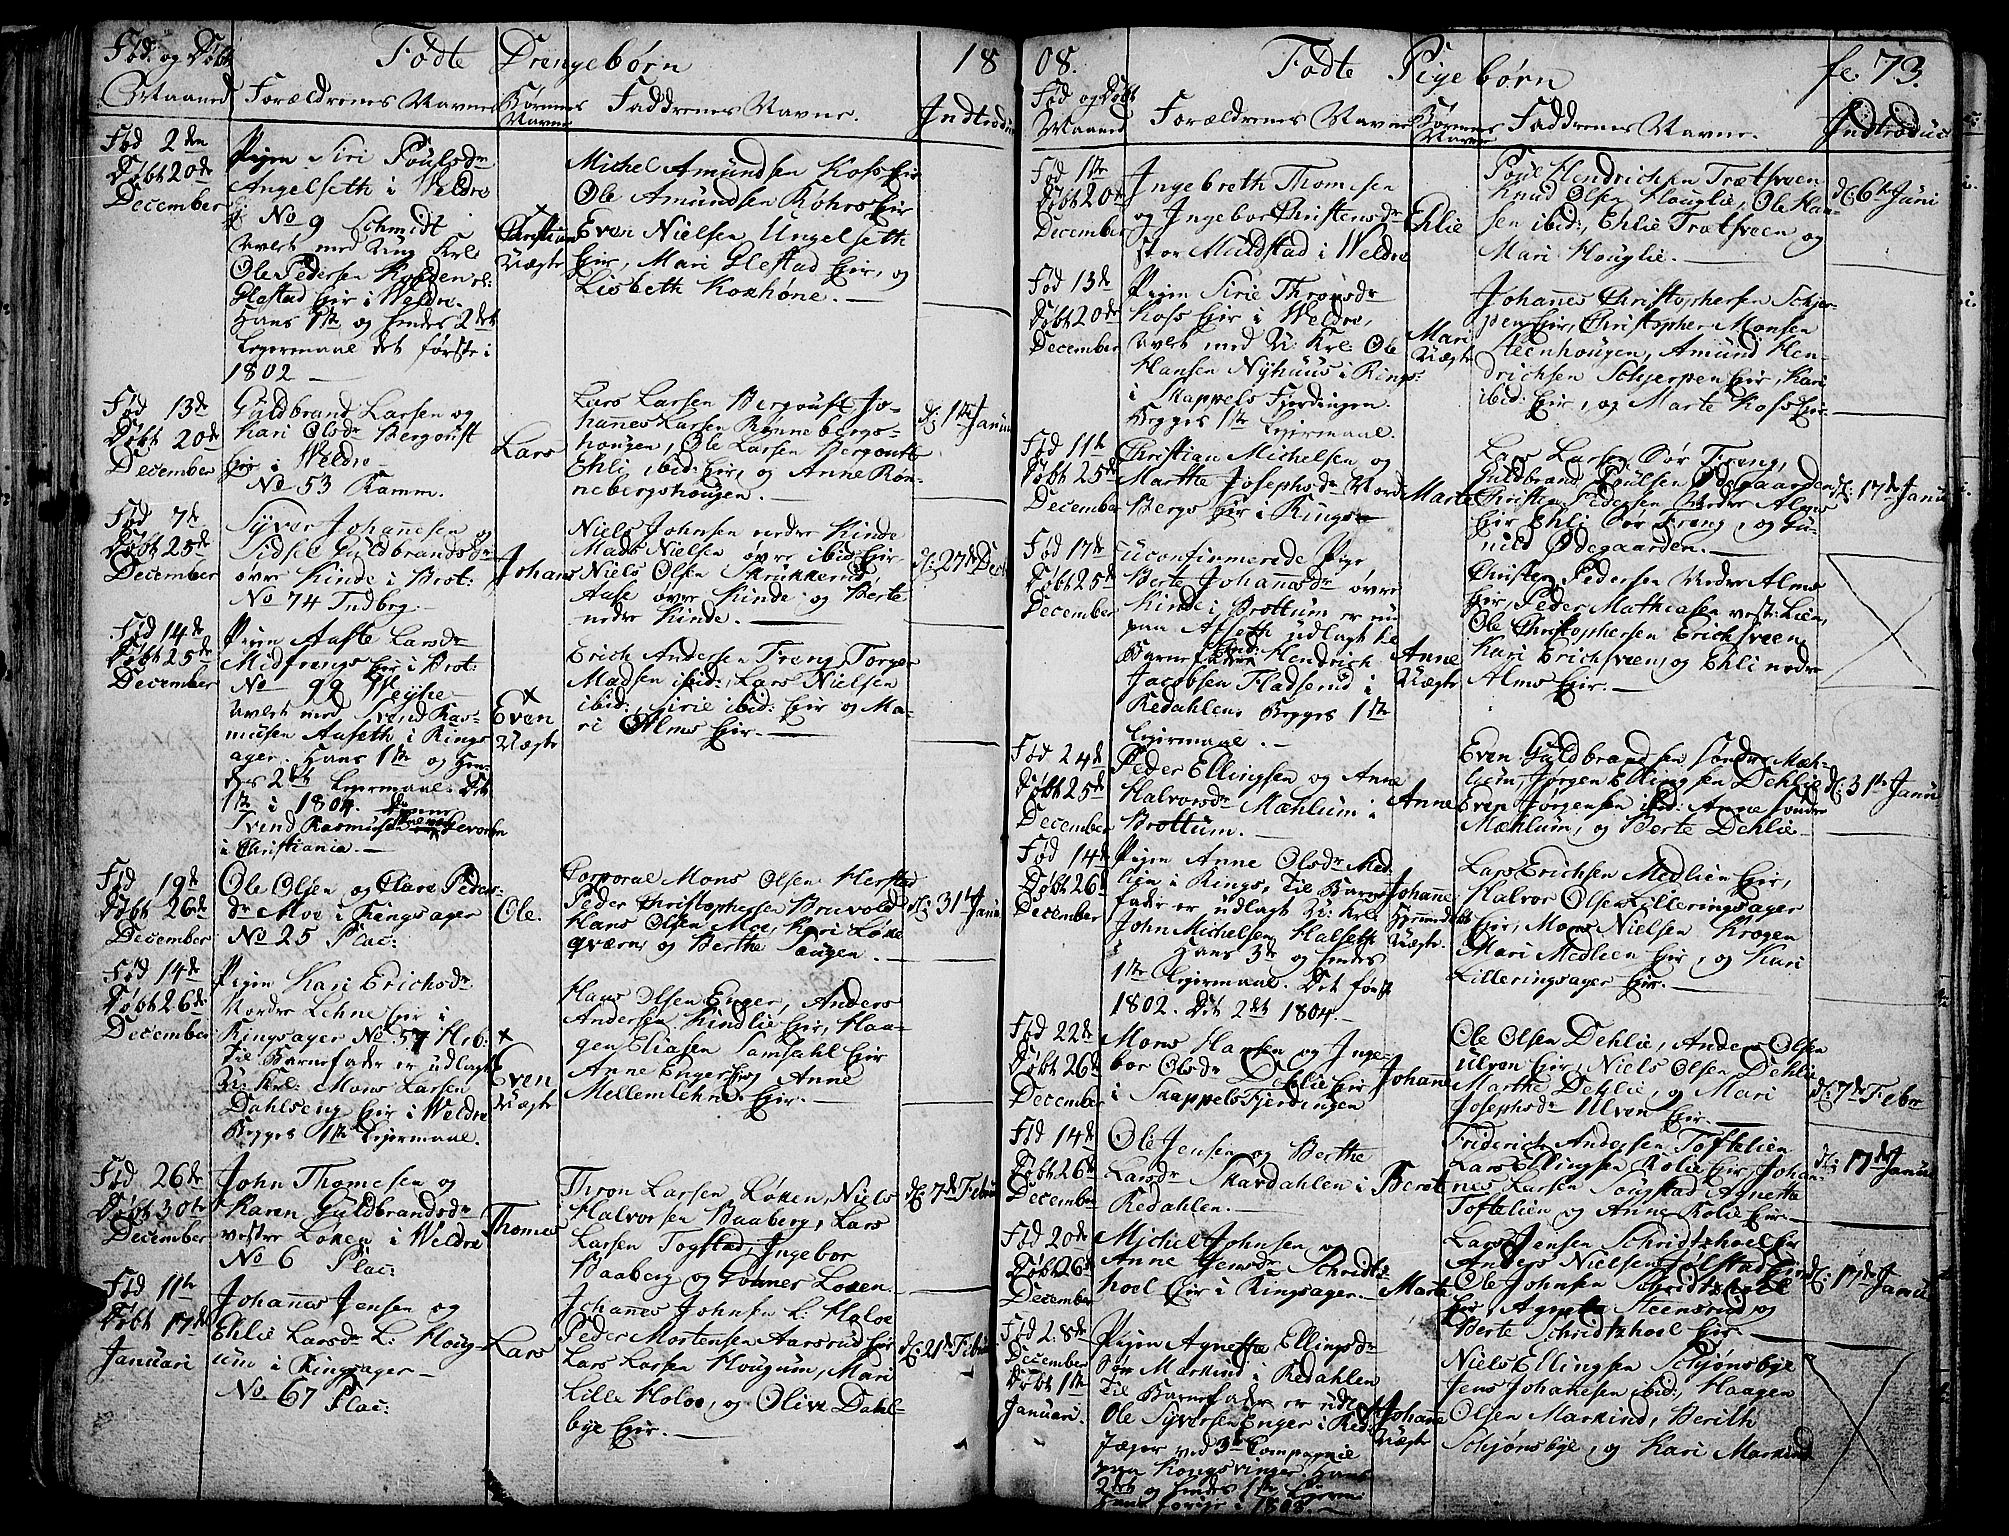 Fød. og Døbt Fødte Drengebørn 18
Maaned Forældrenes Navne Børnenes Navne Faddrenes Navne. Indtroduc
Fød 2den
Døbt 20de
December
Pigen Siri Poulsdr
Angelseth i Weldre
No 9 Schmidt
Avlet med Ung Krl
Ole Pedersen Kolden el:
Glæstad Eir i Weldre.
Hans 1te og Hendes 2det
Lejermaal det første i
1802 —
Christian
Uægte
Michel Amundsen Koss Eir
Ole Amundsen Røhrs Eir
Even Nielsen Ungelseth
Eir, Mari Glestad Eir, og
Lisbeth Koxhøne. —
Fød 13de
Døbt 20de
December
Guldbrand Larsen og
Kari Olsdr Bergoust
Eir i Weldre
No 53 Kamm.
Lars
Lars Larsen Bergoust Jo-
hannes Larsen Rønnebergs-
hougen, Ole Larsen Bergoust
Ehli ibid: Eir, og Anne Røn-
nebergshougen. —
Fød 7de
Døbt 25de
December
Syver Johannesen og
Sidsel Guldbrandsdr
øvre Kinde i Brot:
No 74 Indbrg.
Johans
Niels Johnsen nedre Kinde
Mads Nielsen øvre ibid: Eir
Niels Olsen Skrukkerud
Aase øvre Kinde og Berte
nedre Kinde. —
d: 27de Decb
Fød 14de
Døbt 25de
December
Pigen Aaste Larsdr
Midtrengs Eir i Brot:
No 99
avlet med Svend Ras-
musen Aaseth i Rings
ager. Hans 1te og Hen-
des 2det Lejermaal. Det
1te i 1804.
Svend Rasmusen
i Christiania. —
Even
Uægte
Erich Andersen Freng, Torger
Madsen ibid:, Lars Nielsen
ibid:, Sirie ibid: Eir og Ma-
ri Alms Eir. —
Fød 19de
Døbt 26de
December
Ole Olsen og Clare Peders-
dr Moe i Ringsager
No 25 Plac:
Ole.
Corporal Mons Olsen Herstad
Peder Christophersen Bruvold
Hans Olsen Moe, Kari Løke
qværn, og Berthe Sougen. —
Fød 14de
Døbt 26de
December
Pigen Kari Erichsdr
Nordre Lehne Eir i
Ringsager No 57 Hrb:
Til Barnefader er udlagt
U: Krl: Mons Larsen
Dahlseng Eir i Weldre
Begges 1te Lejermaal.
Even
Uægte
Hans Olsen Enger, Anders
Andersen Kindlie Eir, Haa-
gen Eliasen Samsahl Eir
Anne Enger Eir og Anne
Mellemlehne Eir. —
Fød 26de
Døbt 30te
December
John Thomesen og
Karen Guldbrandsdr
vestre Løken i Weldre
No 6 Plac:
Thomes
Thron Larsen Løken, Niels
Halvorsen Baaberg, Lars
Larsen Togstad, Ingebor
Baaberg og Gønner Løken.
d: 7de Febru
Fød 11te
Døbt 17de
Januari
Johannes Jensen og
Ehlie Larsdr L: Houg-
um i Ringsager —
No 67 Plac:
Lars
Johannes Johnsen L: Holoe
Peder Mortensen Aarsrud Eir
Lars Larsen Hougum, Mari
Lille Holoe, og Olive Dahl-
bye Eir. —
d: 21de Febru
08. Fødte Pigebørn fe. 73.
Fød og Døbt
Maaned Forældrenes Navne Børnenes Navne Faddrenes Navne. Indtroduc
Fød 1te
Døbt 20de
December
Ingebreth Thomesen
og Ingebor Christensdr
stor Muldstad i Weldre
Ehlie
Poul Hendrichsen Trætsveen
Knud Olsen Houglie, Ole Han-
sen ibid:, Ehlie Trætsveen og
Mari Houglie. —
Fød 13de
Døbt 20de
December
Pigen Sirie Thronsdr
Koss Eir i Weldre,
Avlet med U: Krl: Ole
Hansen Nyhuus i Rings:
i Skappels Fjerdingen.
Begges 1te Lejermaal.
Mari
Uægte
Johannes Christophersen Schjer-
pen Eir, Christopher Monsen
Steenhougen, Amund Hen-
drichsen Schjerpen Eir, Kari
ibid: Eir, og Marte Koss Eir.
Fød 11te
Døbt 25de
December
Christian Michelsen og
Marthe Josephsdr Nord
Bergs Eir i Rings
Marte
Lars Larsen Sør Freng,
Guldbrand Poulsen Ødegaarden
Christen Pedersen Nedre Alms
Eir Ehli Sør Freng, og Gu-
nild Ødegaarden. —
d: 17de Janu
Fød 17de
Døbt 25de
December
uconfirmerede Pige
Berte Johannsdr øvre
Kinde i Brottum er nu
paa Asseth udlagt til
Barnefader Hendrich
Jacobsen Fladserud i
Redahlen. Begges 1te
Lejermaal. —
Anne
Uægte
Christen Pedersen Nedre Alms
Eir, Peder Mathiasen vest: Lien,
Ole Christophersen Erichsveen
Kari Erichsveen, og Ehli nedre
Alms Eir. —
Fød 24de
Døbt 25de
December
Peder Ellingsen og Anne
Halvorsdr Mæhlum i
Brottum. —
Anne
Even Guldbrandsen søndre Mæh-
lum, Jørgen Ellingsen Dehlie
Even Jørgensen ibid: Anne søndre
Mæhlum, og Berte Dehlie —
d: 31te Janu
Fød 14de
Døbt 26de
December
Pigen Anne Olsdr Med
lien i Rings, Til Barne
fader er udlagt U: Krl
John Michelsen Halseth
Hans 3de og Hendes
1te Lejermaal. Det første
1802. Det 2det 1804.
Johanne
Uægte.
Lars Erichsen Medlien Eir,
Halvor Olsen Lilleringsager
Eir, Mons Nielsen Krogen
Mari Medlien Eir, og Kari
Lilleringsager Eir. —
Fød 22de
Døbt 26de
December
Mons Hansen og Inge-
bor Olsdr Dehlie Eir
i Skappels Fjerdingen
Johanne
Ole Olsen Dehlie, Anders Olsen
Ulven Eir, Niels Olsen Dehlie
Marthe Dehlie, og Mari
Josephsdr Ulven Eir. —
d: 7de Febr
Fød 14de
Døbt 26de
December
Ole Jensen og Berthe
Larsdr Skardahlen i
Redahlen. —
Beret
Friderich Andersen Toftelien
Lars Ellingsen Kolie Eir, Johan-
nes Larsen Sougstad Agnetha
Toftelien og Anne Kolie Eir. —
d: 17de Janu
Fød 20de
Døbt 26de
December
Michel Johnsen og
Anne Jensdr Schridts
hoel Eir i Ringsager.
Marte
Lars Jensen Schridtshoel Eir
Anders Nielsen Jølstad Eir
Ole Johnsen Schridtshoel
Eir, Agnethe Steensrud og
Berte Schridtshoel Eir. —
d: 17de Janu
Fød 28de
December
Døbt 1te
Januari.
Pigen Agnetha Ellingsdr
Sør Markind i Redahlen
Til Barnefader er udl:
Ole Syversen Enger i Red:
Jæger ved 3de Compagnie
paa Kongsvinger. Hans
2det og Hendes 1te Lejerm
Hans forrige i 1808.
Johanne
Uægte
Niels Ellingsen Schjønsbye
Jens Johannesen ibid:, Haagen
Olsen Markind, Berith
Schjønsbye, og Kari Markind